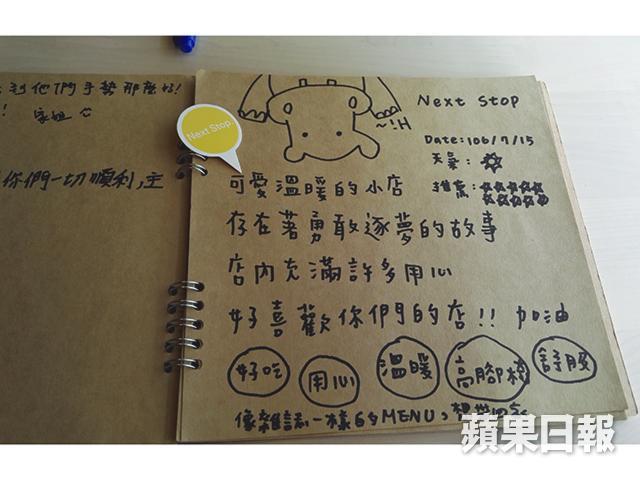 到他們手勢那麼好!
!
你們一切順利,主
Next Stop.
~!H
Next Stop
Date:106/7/15
天氣:
推薦:
可愛溫暖的小店
存在著勇敢逐夢的故事
店內充滿許多用心
好喜歡你們的店!! 加油
好吃 用心 溫暖 高腳椅 舒服
像雜誌一樣的MENU,
蘋果日報